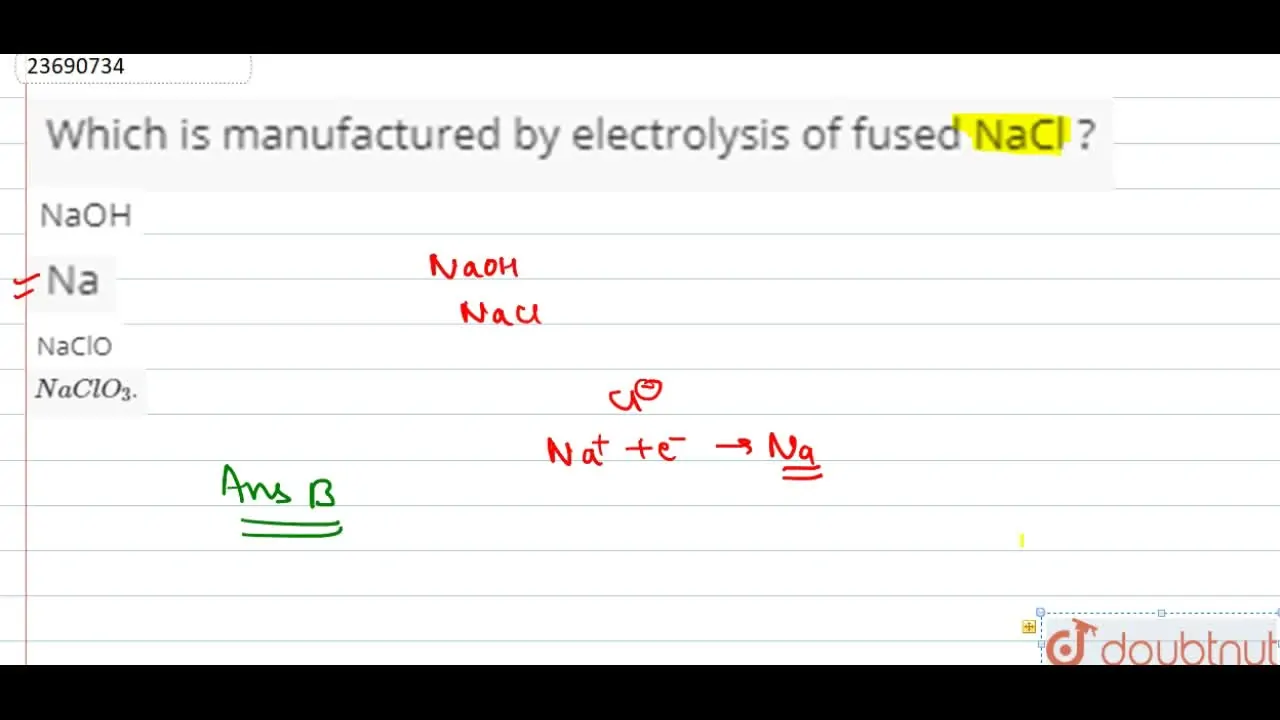 23690734
Which is manufactured by electrolysis of fused NaCl ?
NaOH
Na
NaClO
NaClO₃.
NaOH
NaCl
Cl⊖
Na⁺ + e⁻ → Na
Ans B
doubtnut